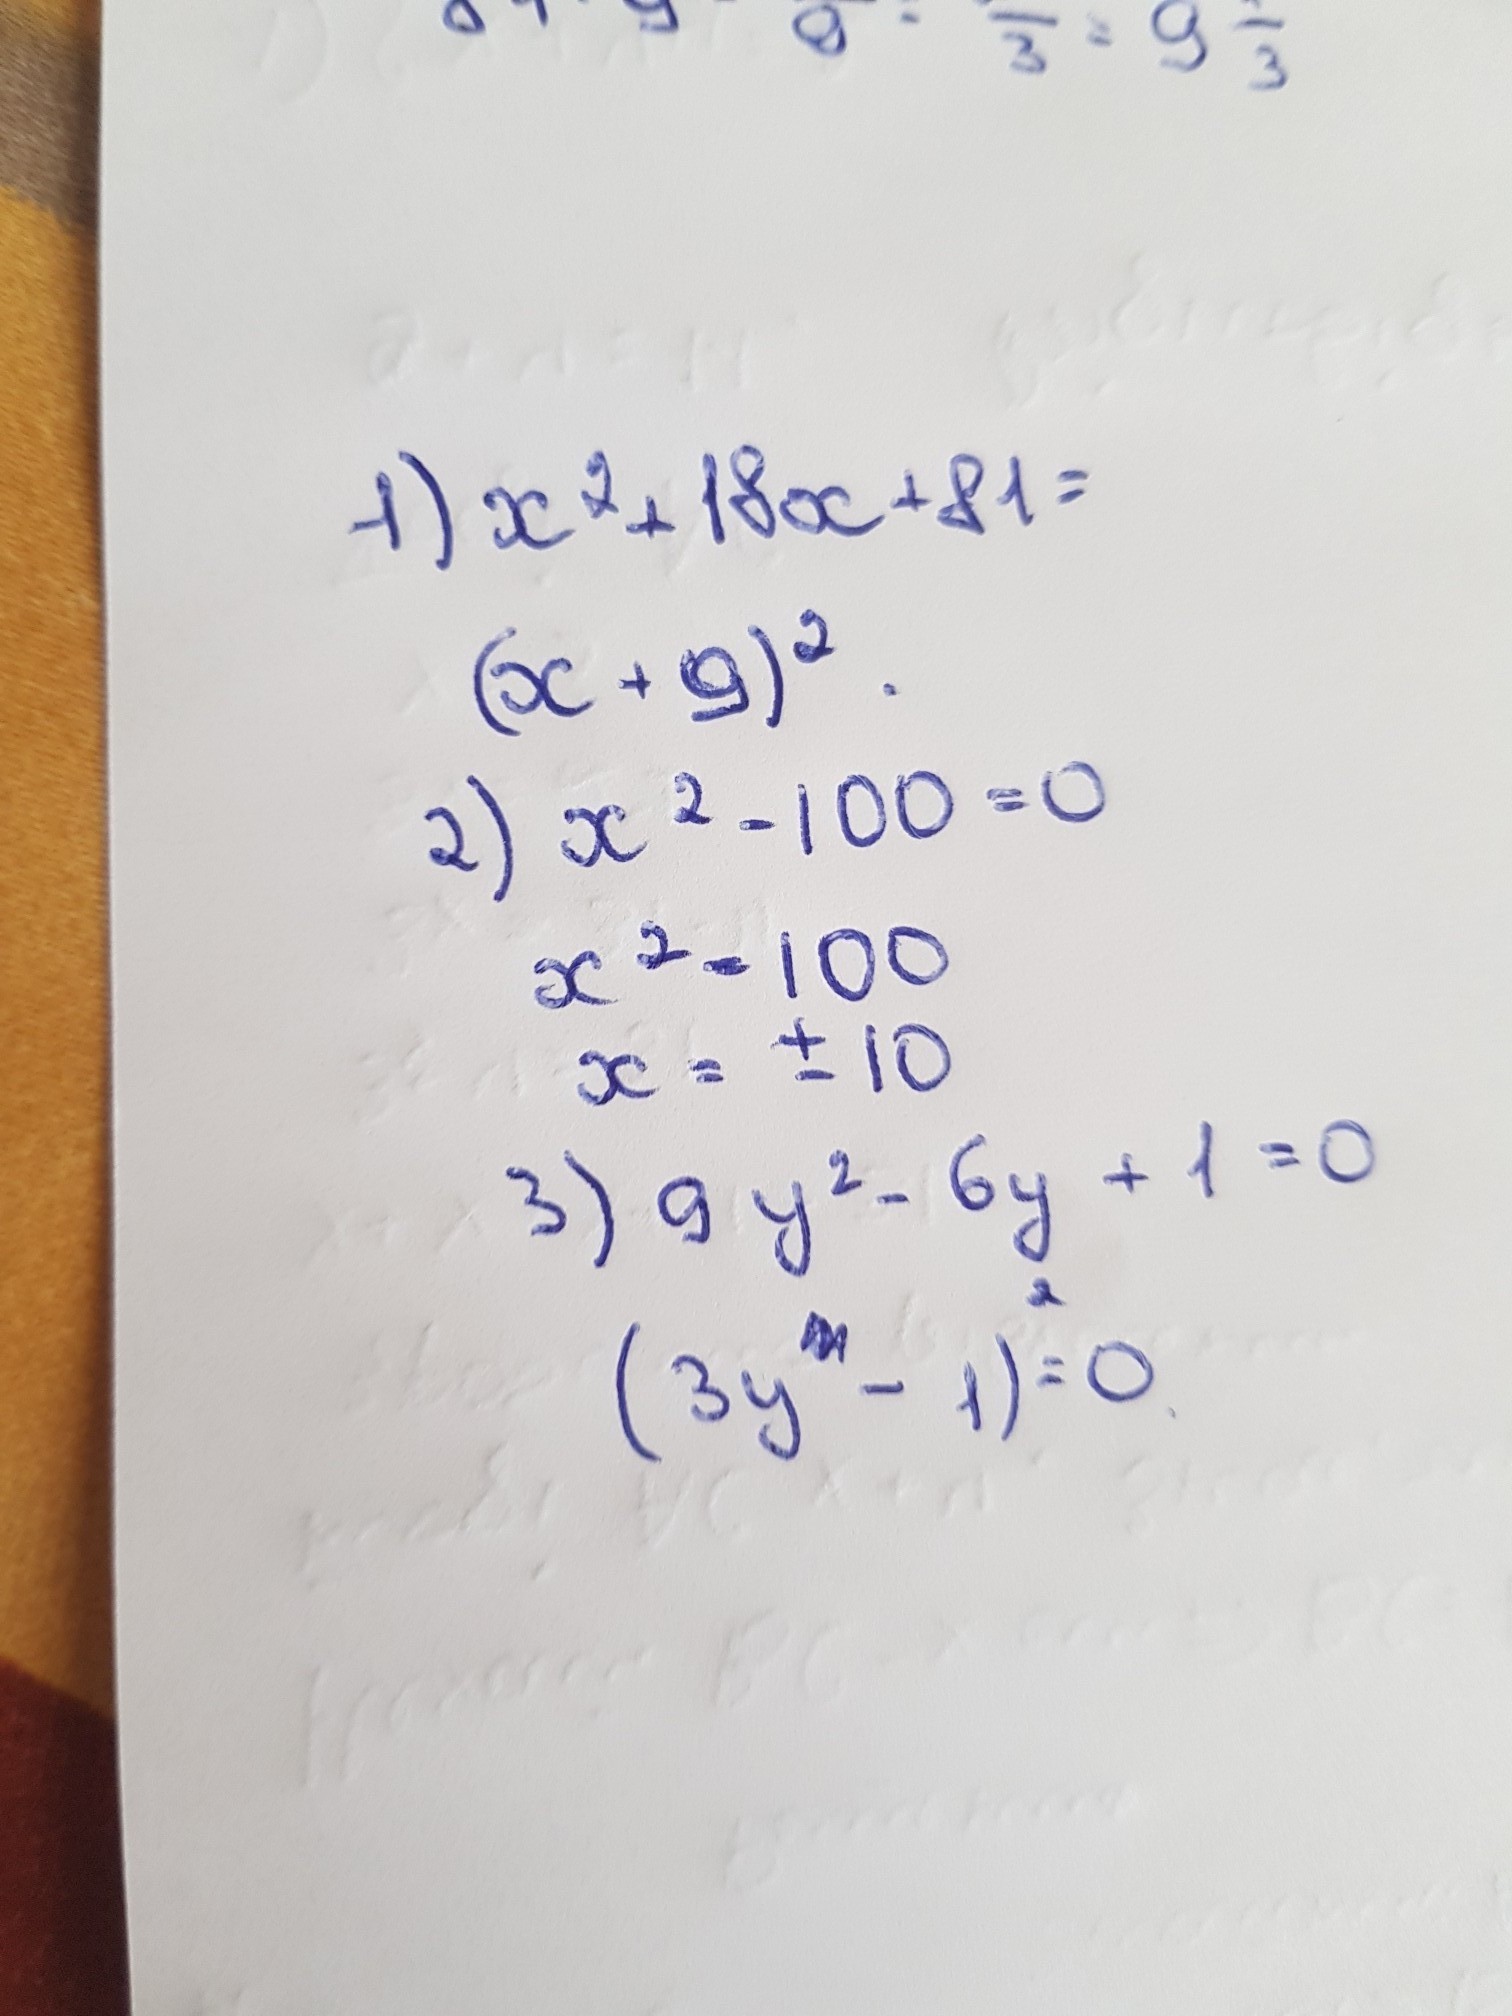 = 9 1/3
1) x² + 18x + 81 =
(x + 9)² .
2) x² - 100 = 0
x² = 100
x = ± 10
3) 9y² - 6y + 1 = 0
(3y - 1)² = 0.